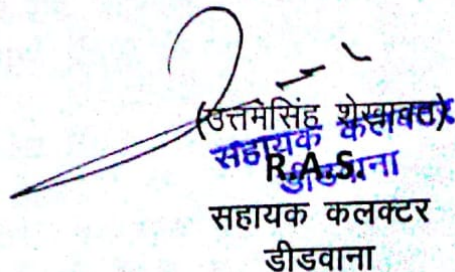 (उत्तमसिंह शेखावत)
सहायक कलक्टर
R.A.S.
डीडवाना
सहायक कलक्टर
डीडवाना